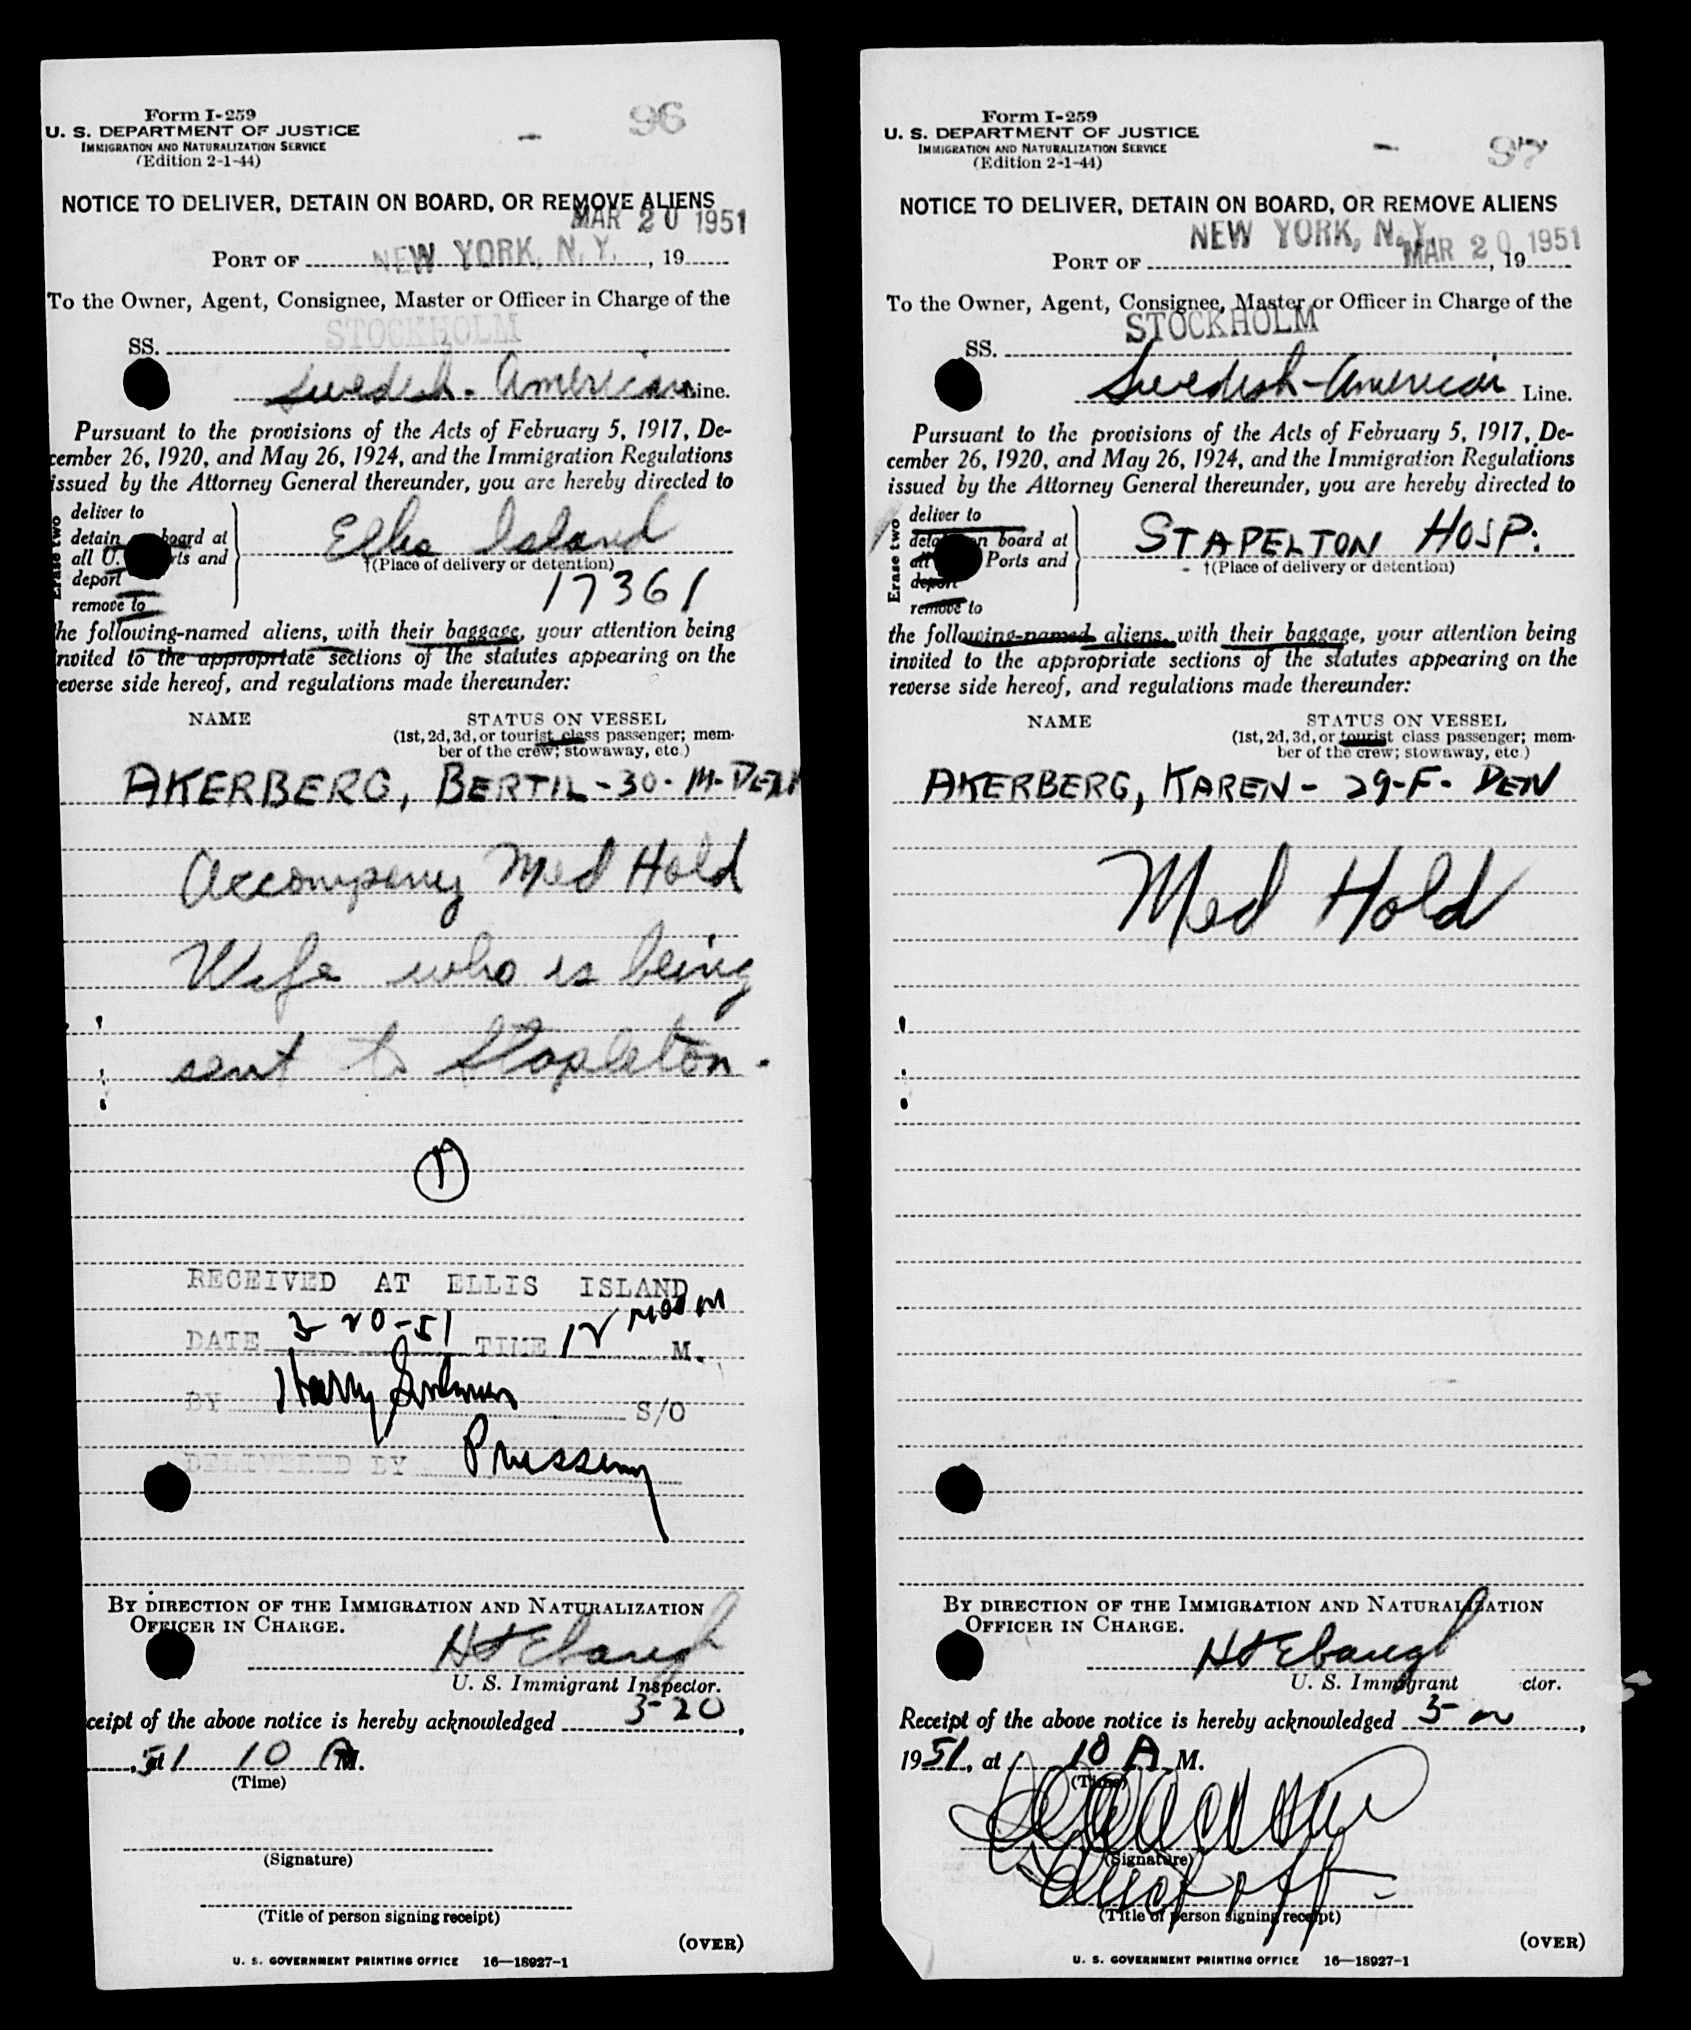 Form I-259
U. S. DEPARTMENT OF JUSTICE
IMMIGRATION AND NATURALIZATION SERVICE
(Edition 2-1-44)
96
NOTICE TO DELIVER, DETAIN ON BOARD, OR REMOVE ALIENS
MAR 20 1951
PORT OF NEW YORK, N. Y., 19
To the Owner, Agent, Consignee, Master or Officer in Charge of the
STOCKHOLM
SS.
Swedish-American Line.
Pursuant to the provisions of the Acts of February 5, 1917, De-
cember 26, 1920, and May 26, 1924, and the Immigration Regulations
issued by the Attorney General thereunder, you are hereby directed to
Erase two
deliver to
detain board at
all U. rts and
deport
remove to
Ellis Island
†(Place of delivery or detention)
17361
he following-named aliens, with their baggage, your attention being
nvited to the appropriate sections of the statutes appearing on the
everse side hereof, and regulations made thereunder:
NAME
STATUS ON VESSEL
(1st, 2d, 3d, or tourist class passenger; mem-
ber of the crew; stowaway, etc.)
AKERBERG, BERTIL - 30 - M - DEN
Accompany Med Hold
Wife who is being
sent to Stapleton.
1
RECEIVED AT ELLIS ISLAND
DATE 3-20-51 TIME 12 noon M.
BY Harry S/O
DELIVERED BY
BY DIRECTION OF THE IMMIGRATION AND NATURALIZATION
OFFICER IN CHARGE.
H Ebaugh
U. S. Immigrant Inspector.
ceipt of the above notice is hereby acknowledged 3-20,
51, at 10 A M.
(Time)
(Signature)
(Title of person signing receipt)
(OVER)
U. S. GOVERNMENT PRINTING OFFICE 16—18927-1
Form I-259
U. S. DEPARTMENT OF JUSTICE
IMMIGRATION AND NATURALIZATION SERVICE
(Edition 2-1-44)
97
NOTICE TO DELIVER, DETAIN ON BOARD, OR REMOVE ALIENS
NEW YORK, N. Y. MAR 20 1951
PORT OF , 19
To the Owner, Agent, Consignee, Master or Officer in Charge of the
STOCKHOLM
SS.
Swedish-American Line.
Pursuant to the provisions of the Acts of February 5, 1917, De-
cember 26, 1920, and May 26, 1924, and the Immigration Regulations
issued by the Attorney General thereunder, you are hereby directed to
Erase two
deliver to
deta n board at
all Ports and
deport
remove to
STAPELTON HOSP.
†(Place of delivery or detention)
the following-named aliens, with their baggage, your attention being
invited to the appropriate sections of the statutes appearing on the
reverse side hereof, and regulations made thereunder:
NAME
STATUS ON VESSEL
(1st, 2d, 3d, or tourist class passenger; mem-
ber of the crew; stowaway, etc.)
AKERBERG, KAREN - 29-F - DEN
Med Hold
BY DIRECTION OF THE IMMIGRATION AND NATURALIZATION
OFFICER IN CHARGE.
H Ebaugh
U. S. Immigrant ctor.
Receipt of the above notice is hereby acknowledged 3-20,
1951, at 10 A M.
(Time)
(Signature)
(Title of person signing receipt)
(OVER)
U. S. GOVERNMENT PRINTING OFFICE 16—18927-1